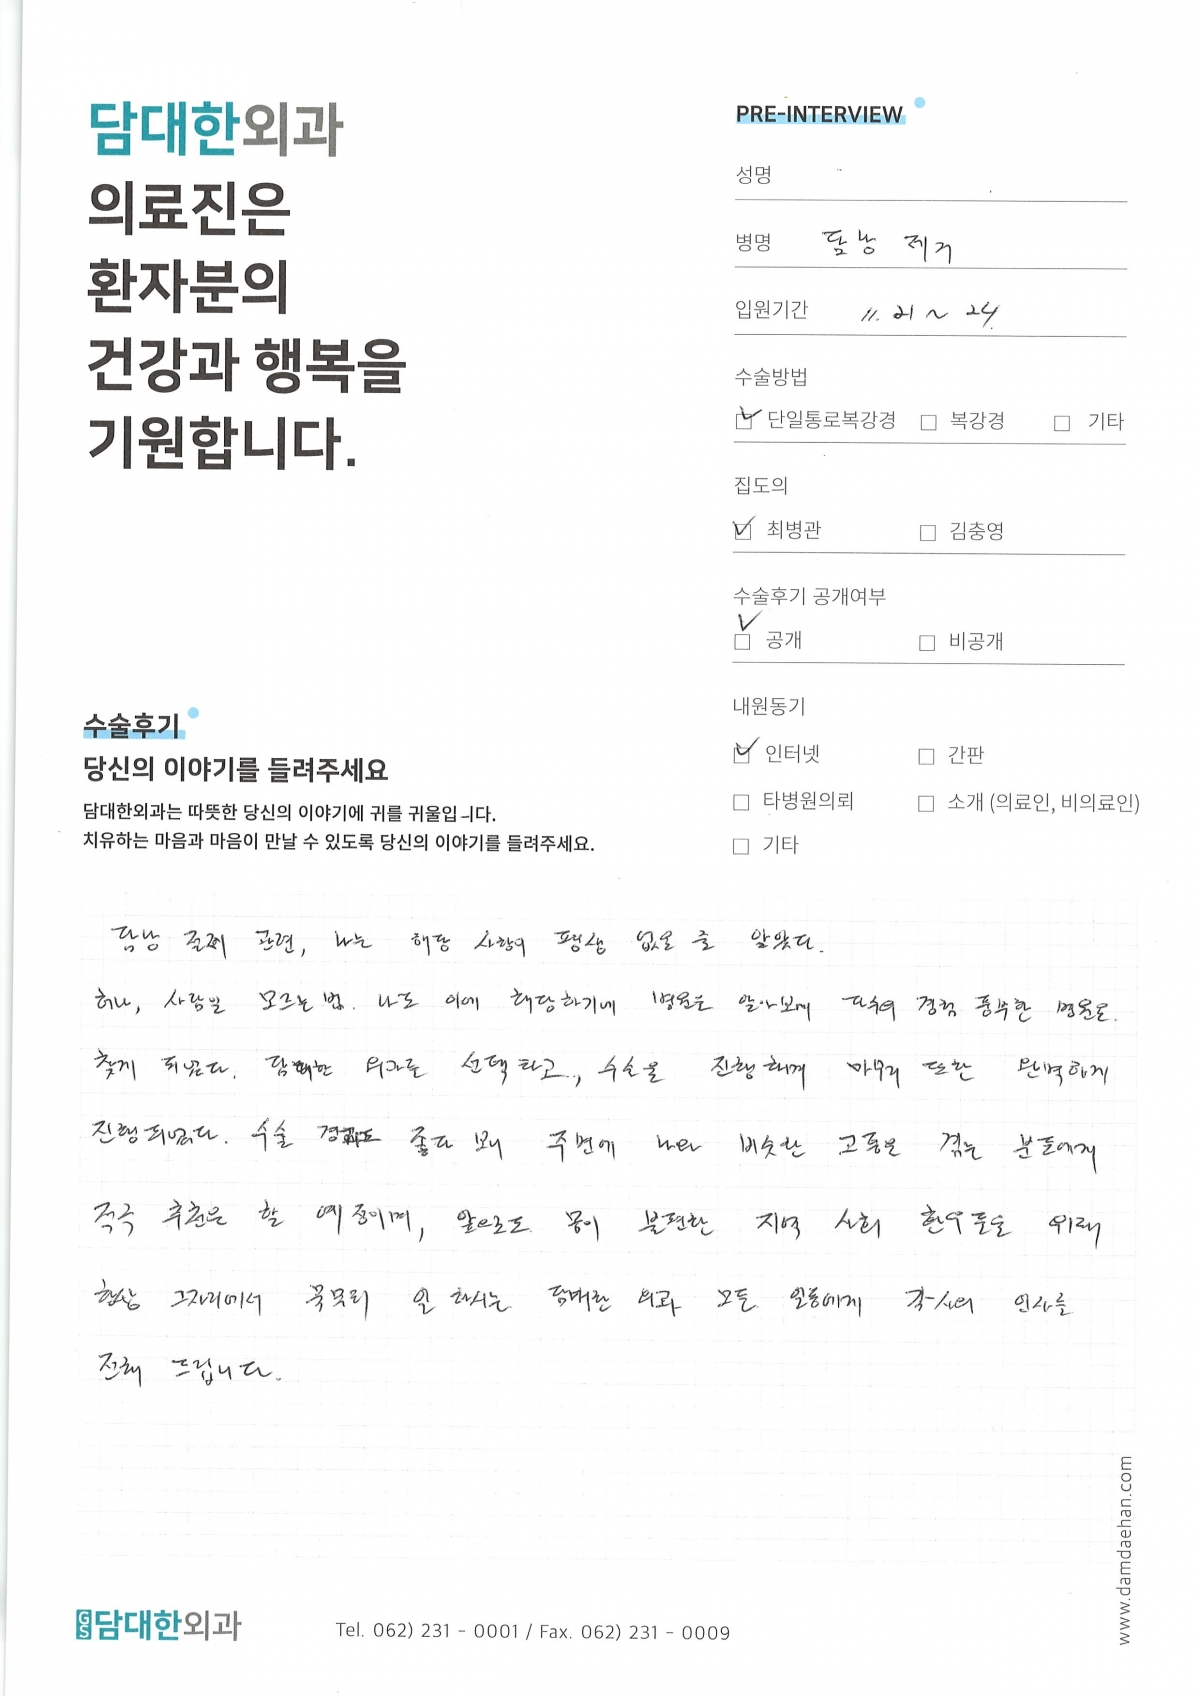 담대한외과
의료진은
환자분의
건강과 행복을
기원합니다.
PRE-INTERVIEW
성명
병명 담낭 제거
입원기간 11. 21 ~ 24.
수술방법
단일통로복강경 복강경 기타
집도의
최병관 김충영
수술후기 공개여부
공개 비공개
내원동기
인터넷 간판
타병원의뢰 소개 (의료인, 비의료인)
기타
수술후기
당신의 이야기를 들려주세요
담대한외과는 따뜻한 당신의 이야기에 귀를 귀울입니다.
치유하는 마음과 마음이 만날 수 있도록 당신의 이야기를 들려주세요.
담낭 절제 관련, 나는 해당 사항이 평생 없을 줄 알았다.
허나, 사람일 모르는 법. 나도 이에 해당하기에 병원을 알아보며 다수의 경험 풍부한 병원을
찾게 되었다. 담대한 외과를 선택하고, 수술을 진행하며 마무리 또한 완벽하게
진행되었다. 수술 경과도 좋다 보니 주변에 나와 비슷한 고통을 겪는 분들에게
적극 추천을 할 예정이며, 앞으로도 몸이 불편한 지역 사회 환우들을 위해
항상 그자리에서 묵묵히 일 하시는 담대한 외과 모든 일동에게 감사의 인사를
전해 드립니다.
GS 담대한외과
Tel. 062) 231 - 0001 / Fax. 062) 231 - 0009
www.damdaehan.com